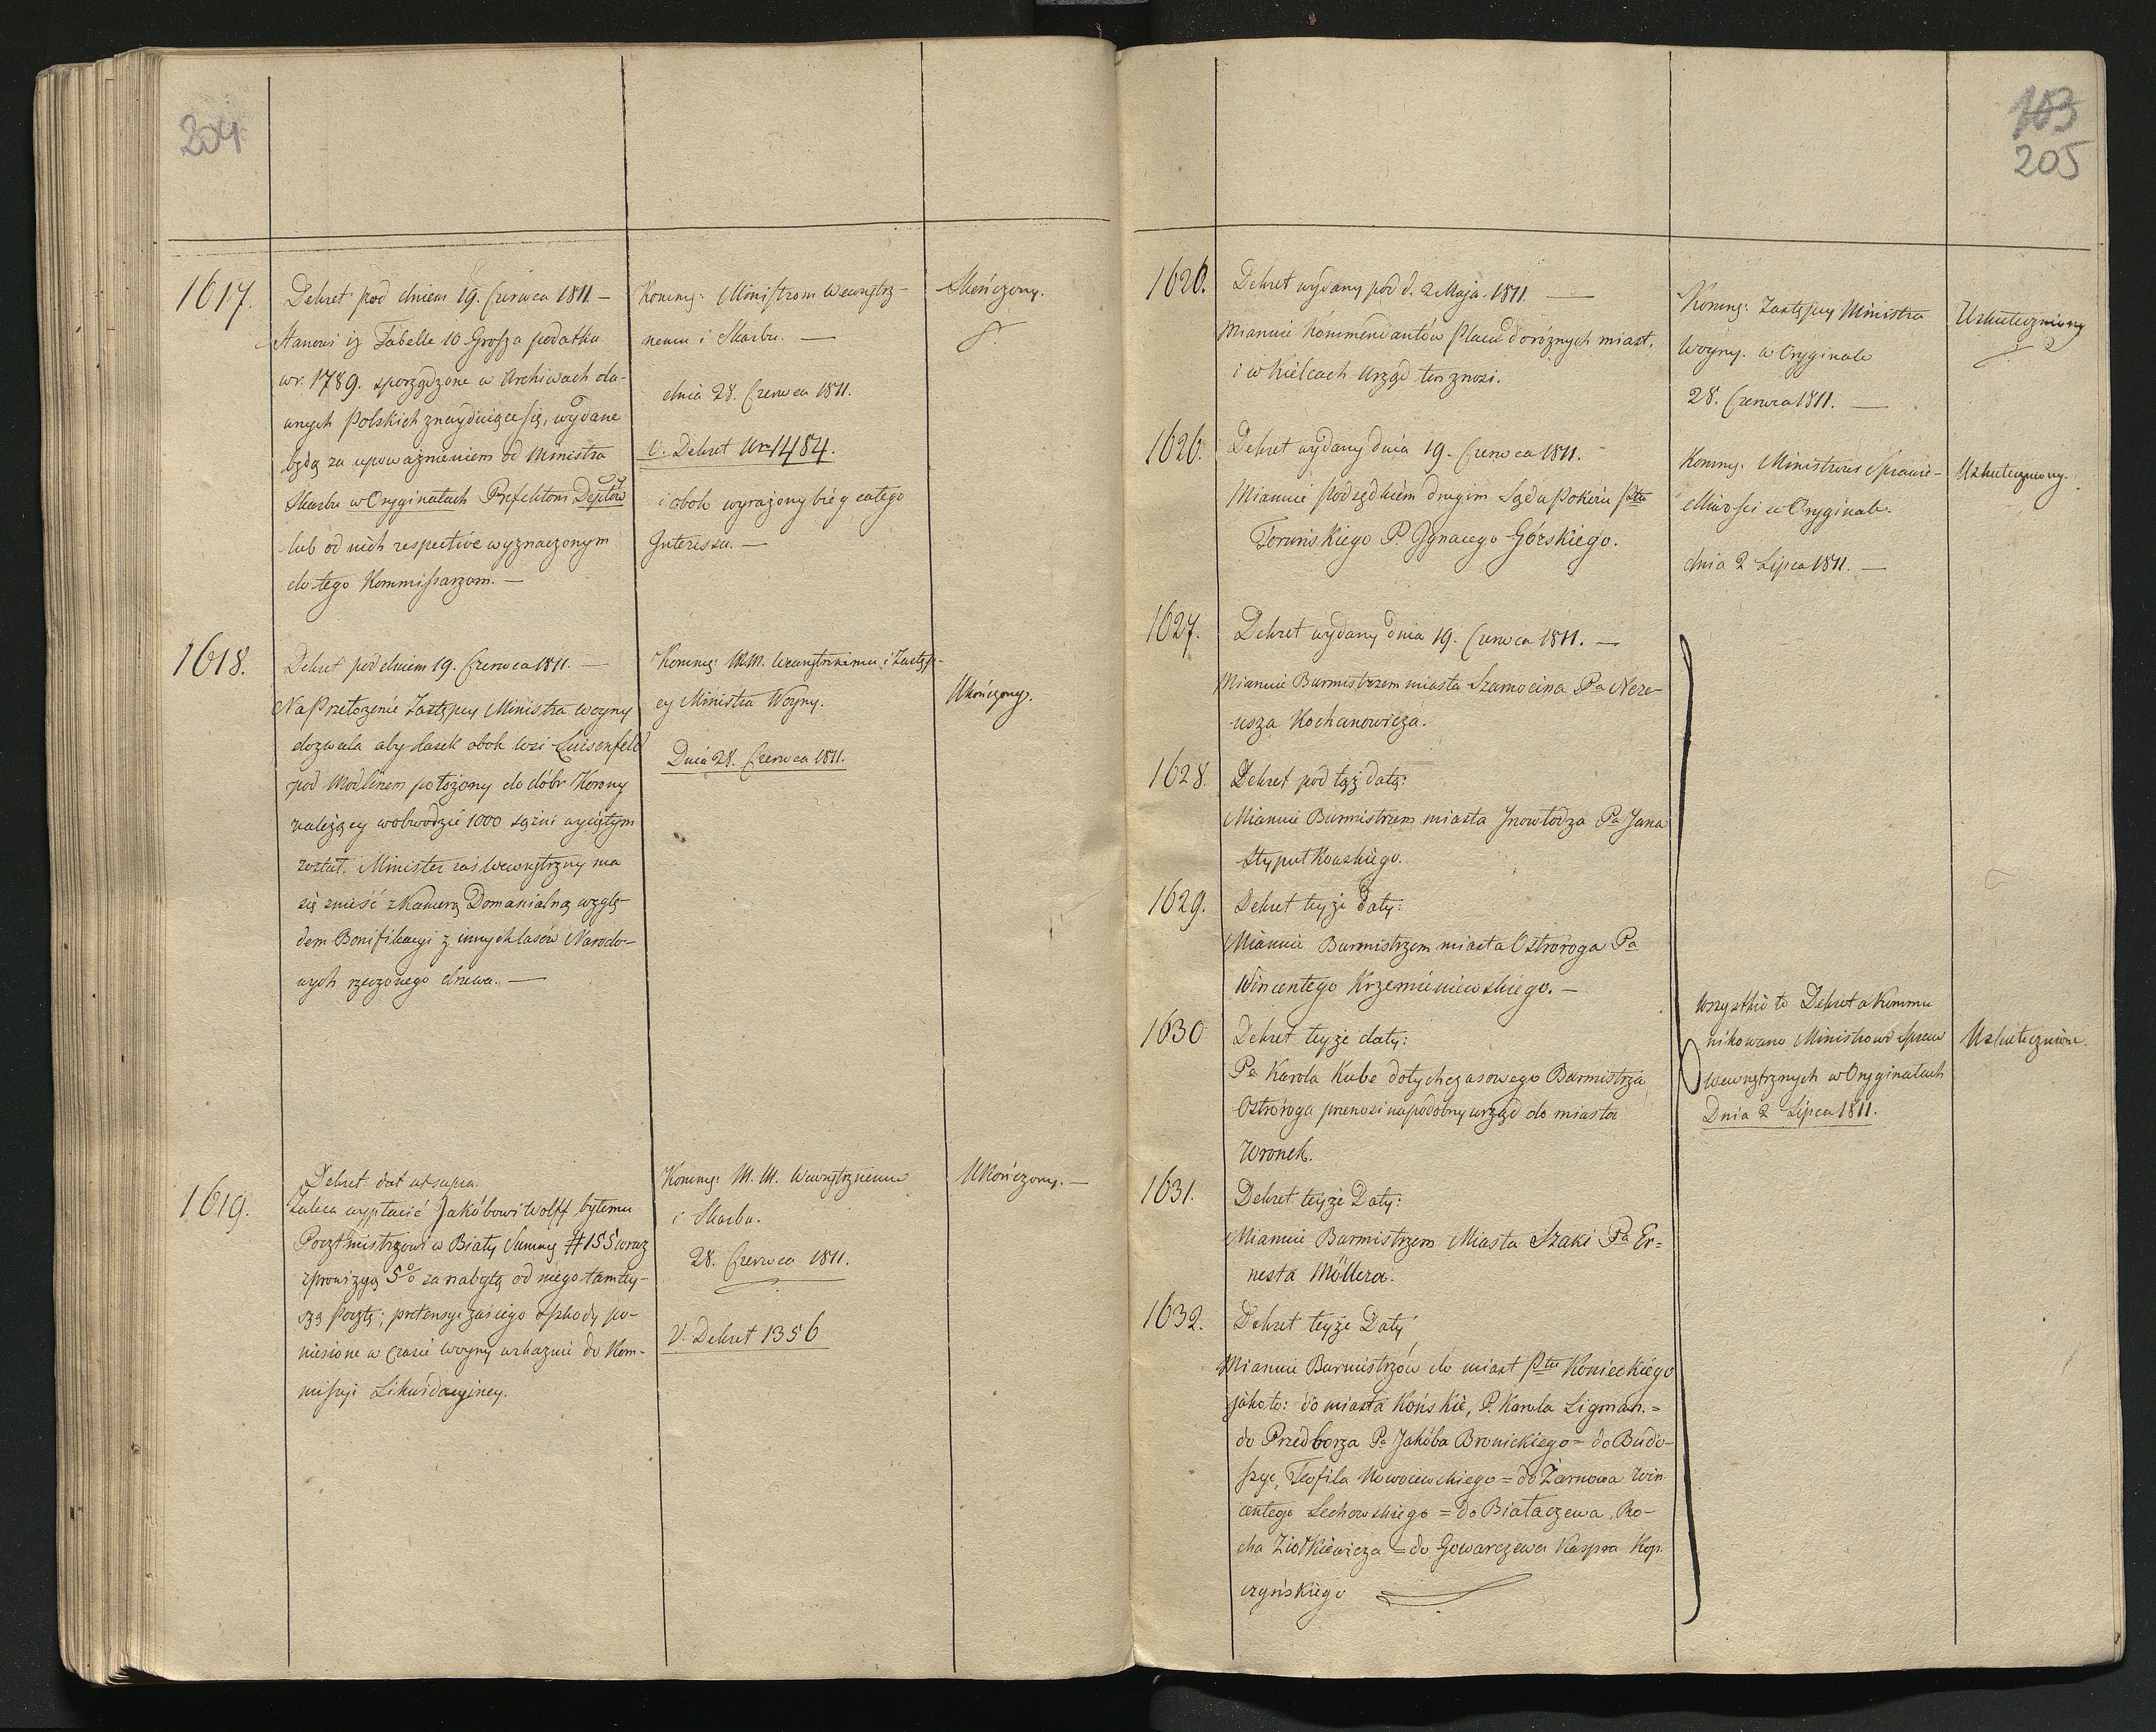 204
1617.
Dekret pod dniem 19. Czerwca 1811 —
Stanowi iż Tabelle 10 Grosza podatku
w r. 1789. sporządzone w Archiwach da-
wnych Polskich znayduiące się, wydane
będą za upoważnieniem od Ministra
Skarbu w Oryginałach Prefektom Deptów
lub od nich respective wyznaczonym
do tego Kommissarzom. —
Kommę: Ministrom Wewnętrz-
nemu i Skarbu. —
dnia 28. Czerwca 1811.
V. Dekret Nro 1484.
i obok wyrażony bieg całego
Interessu. —
Skończony.
1618.
Dekret pod dniem 19. Czerwca 1811. —
Na Przełożenie Zastępcy Ministra woyny
dozwala aby lasek obok wsi Luisenfeld
pod Modlinem położony do dóbr Korony
należący w obwodzie 1000 sążni wyciętym
został. Minister zaś Wewnętrzny ma
się znieść z Kamerą Domanialną wzglę-
dem Bonifikacyi z innych lasów Narodo-
wych rzeczonego drzewa. —
Kommę: M.M. Wewnętrznemu i Zastęp-
cy Ministra Woyny.
Dnia 28. Czerwca 1811.
Ukończony.
1619.
Dekret dat ut supra.
Zaleca wypłacić Jakóbowi Wolff byłemu
Pocztmistrzowi w Biały Summę # 155 wraz
z prowizyą 5% za nabytą od niego tamtey-
szą Pocztę; pretensye zaś iego o szkody po-
niesione w czasie woyny wskazuie do Kom-
missyi Likwidacyiney.
Kommę: M. M. Wewnętrznemu
i Skarbu.
28. Czerwca 1811.
V. Dekret 1356
Ukończony. —
103
205
1626.
Dekret wydany pod d. 2 Maja 1811. —
Mianuie Kommendantów Placu do różnych miast,
i w Kielcach Urząd ten znosi.
Kommę: Zastępcy Ministra
Woyny. w Oryginale
28. Czerwca 1811. —
Uskuteczniony
1626.
Dekret wydany dnia 19. Czerwca 1811. -
Mianuie Podsędkiem drugim Sądu Pokoiu Pttu
Toruńskiego P. Ignacego Górskiego.
Kommę: Ministrowi Sprawie-
dliwości w Oryginale.
dnia 2 Lipca 1811. —
Uskuteczniony.
1627.
Dekret wydany dnia 19. Czerwca 1811. —
Mianuie Burmistrzem miasta Szamocina Pa Nere-
usza Kochanowicza.
1628.
Dekret pod tąż datą:
Mianuie Burmistrzem miasta Inowłodza Pa Jana
Stypułkowskiego.
1629.
Dekret teyże daty:
Mianuie Burmistrzem miasta Ostroroga Pa
Wincentego Krzemieniewskiego. —
1630
Dekret teyże daty:
Pa Karola Kube dotychczasowego Burmistrza
Ostroroga przenosi na podobny urząd do miasta
Wronek.
1631.
Dekret teyże Daty:
Mianuie Burmistrzem Miasta Szaki Pa Er=
nesta Möllera.
1632.
Dekret teyże Daty
Mianuie Burmistrzów do miast Pttu Konieckiego
jako to: do miasta Końskie, P. Karola Ligman. =
do Przedborza Pa Jakóba Bronickiego = do Rado-
szyc, Teofila Nowociewskiego = do Żarnowa Win
centego Lechowskiego = do Białaczewa, Ro-
cha Ziołkiewicza = do Gowarczewa Kaspra Kop
czyńskiego
Wszystkie te Dekreta Kommu
nikowano Ministrowi Spraw
Wewnętrznych w Oryginałach
Dnia 2 Lipca 1811.
Uskutecznione.